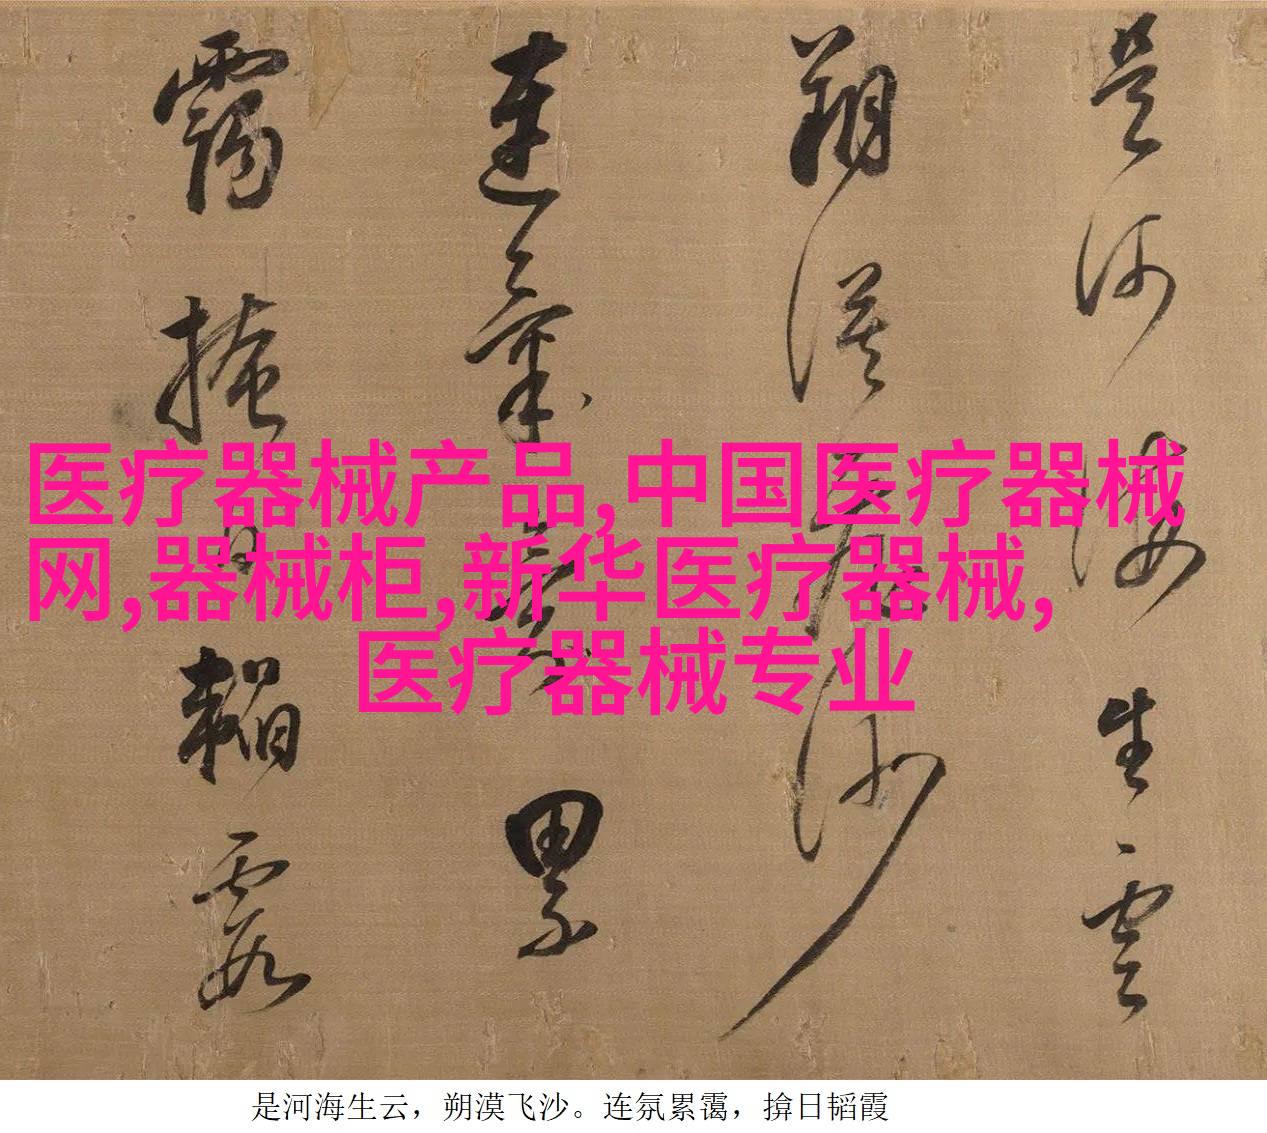 是河海生云
朔漠飞沙
连氛累
霭掩日韬霞
医疗器械产品,中国医疗器械
网,器械柜,新华医疗器械,
医疗器械专业
是河海生云，朔漠飞沙。连氛累霭，揜日韬霞